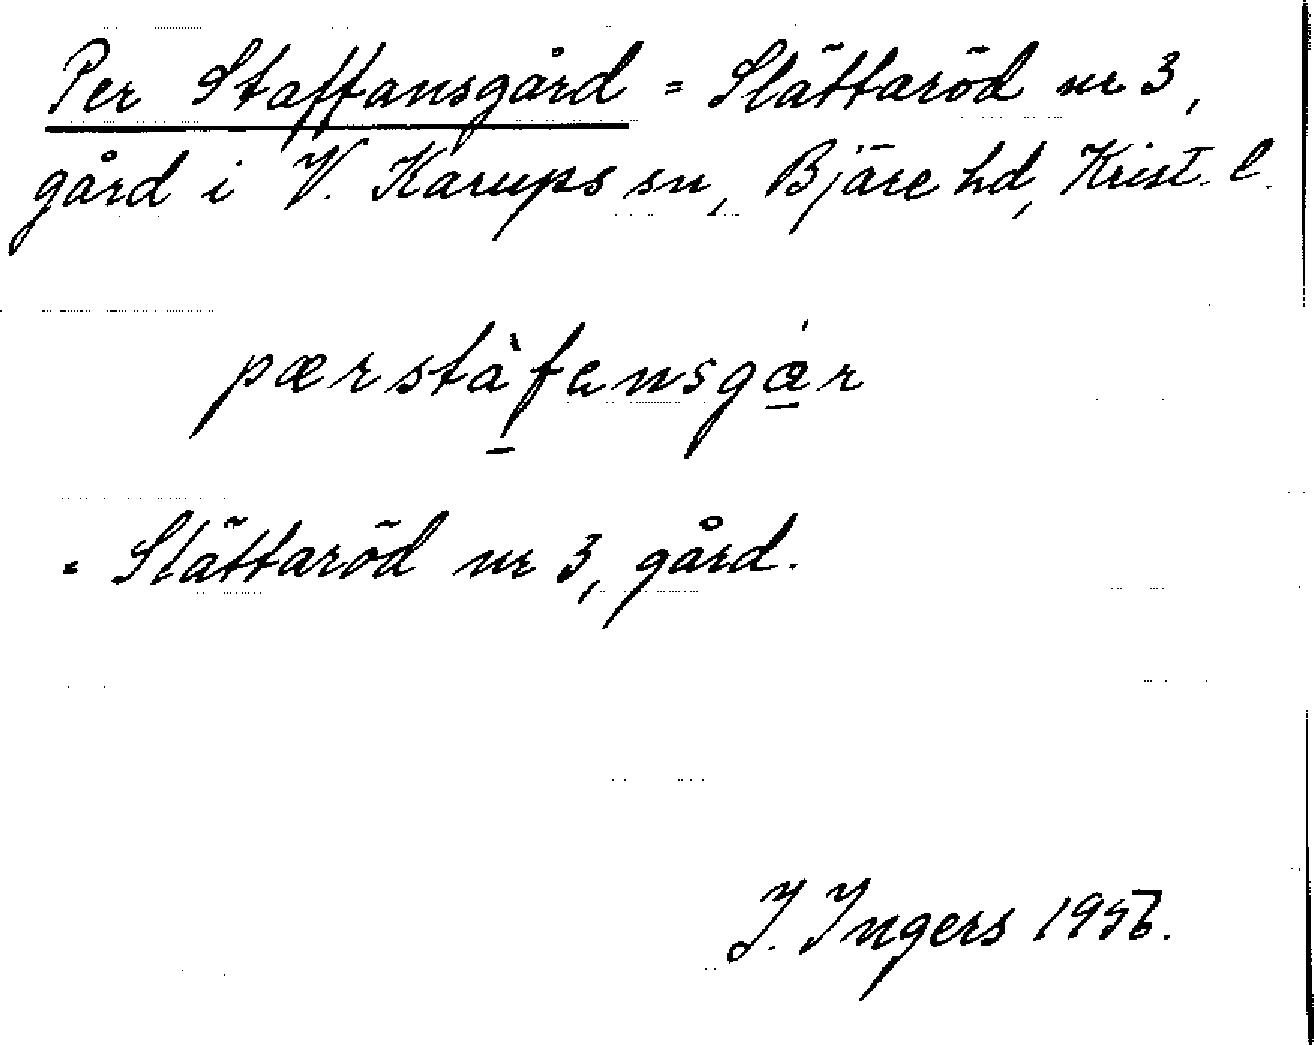 Per Staffansgård = Slättaröd nr 3,
gård i V. Karups sn, Bjäre hd, Krist. l.
pærstàfansgár
= Slättaröd nr 3, gård.
I. Ingers 1956.